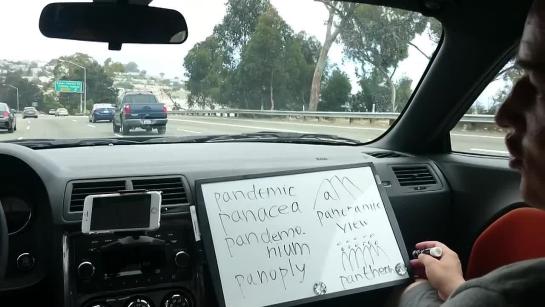 pandemic
panacea
pandemo.
nium
panoply
all
panoramic
view
panthers